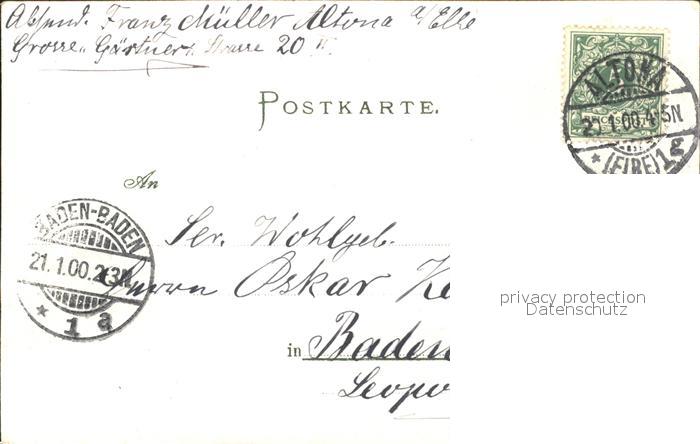 Absend. Franz Müller Altona a/Elbe
Grosse Gärtner Strasse 20 II.
POSTKARTE.
ALTONA
21.1.00.4-5N
* (ELBE) 1g
An
BADEN-BADEN
21.1.00.2-3N
* 1 a
Sr. Wohlgeb.
Herrn Oskar
in Baden
Leopo
privacy protection
Datenschutz